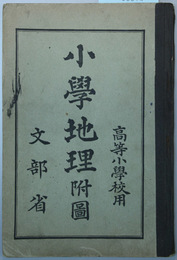 高等小學校用
小學地理附圖
文部省